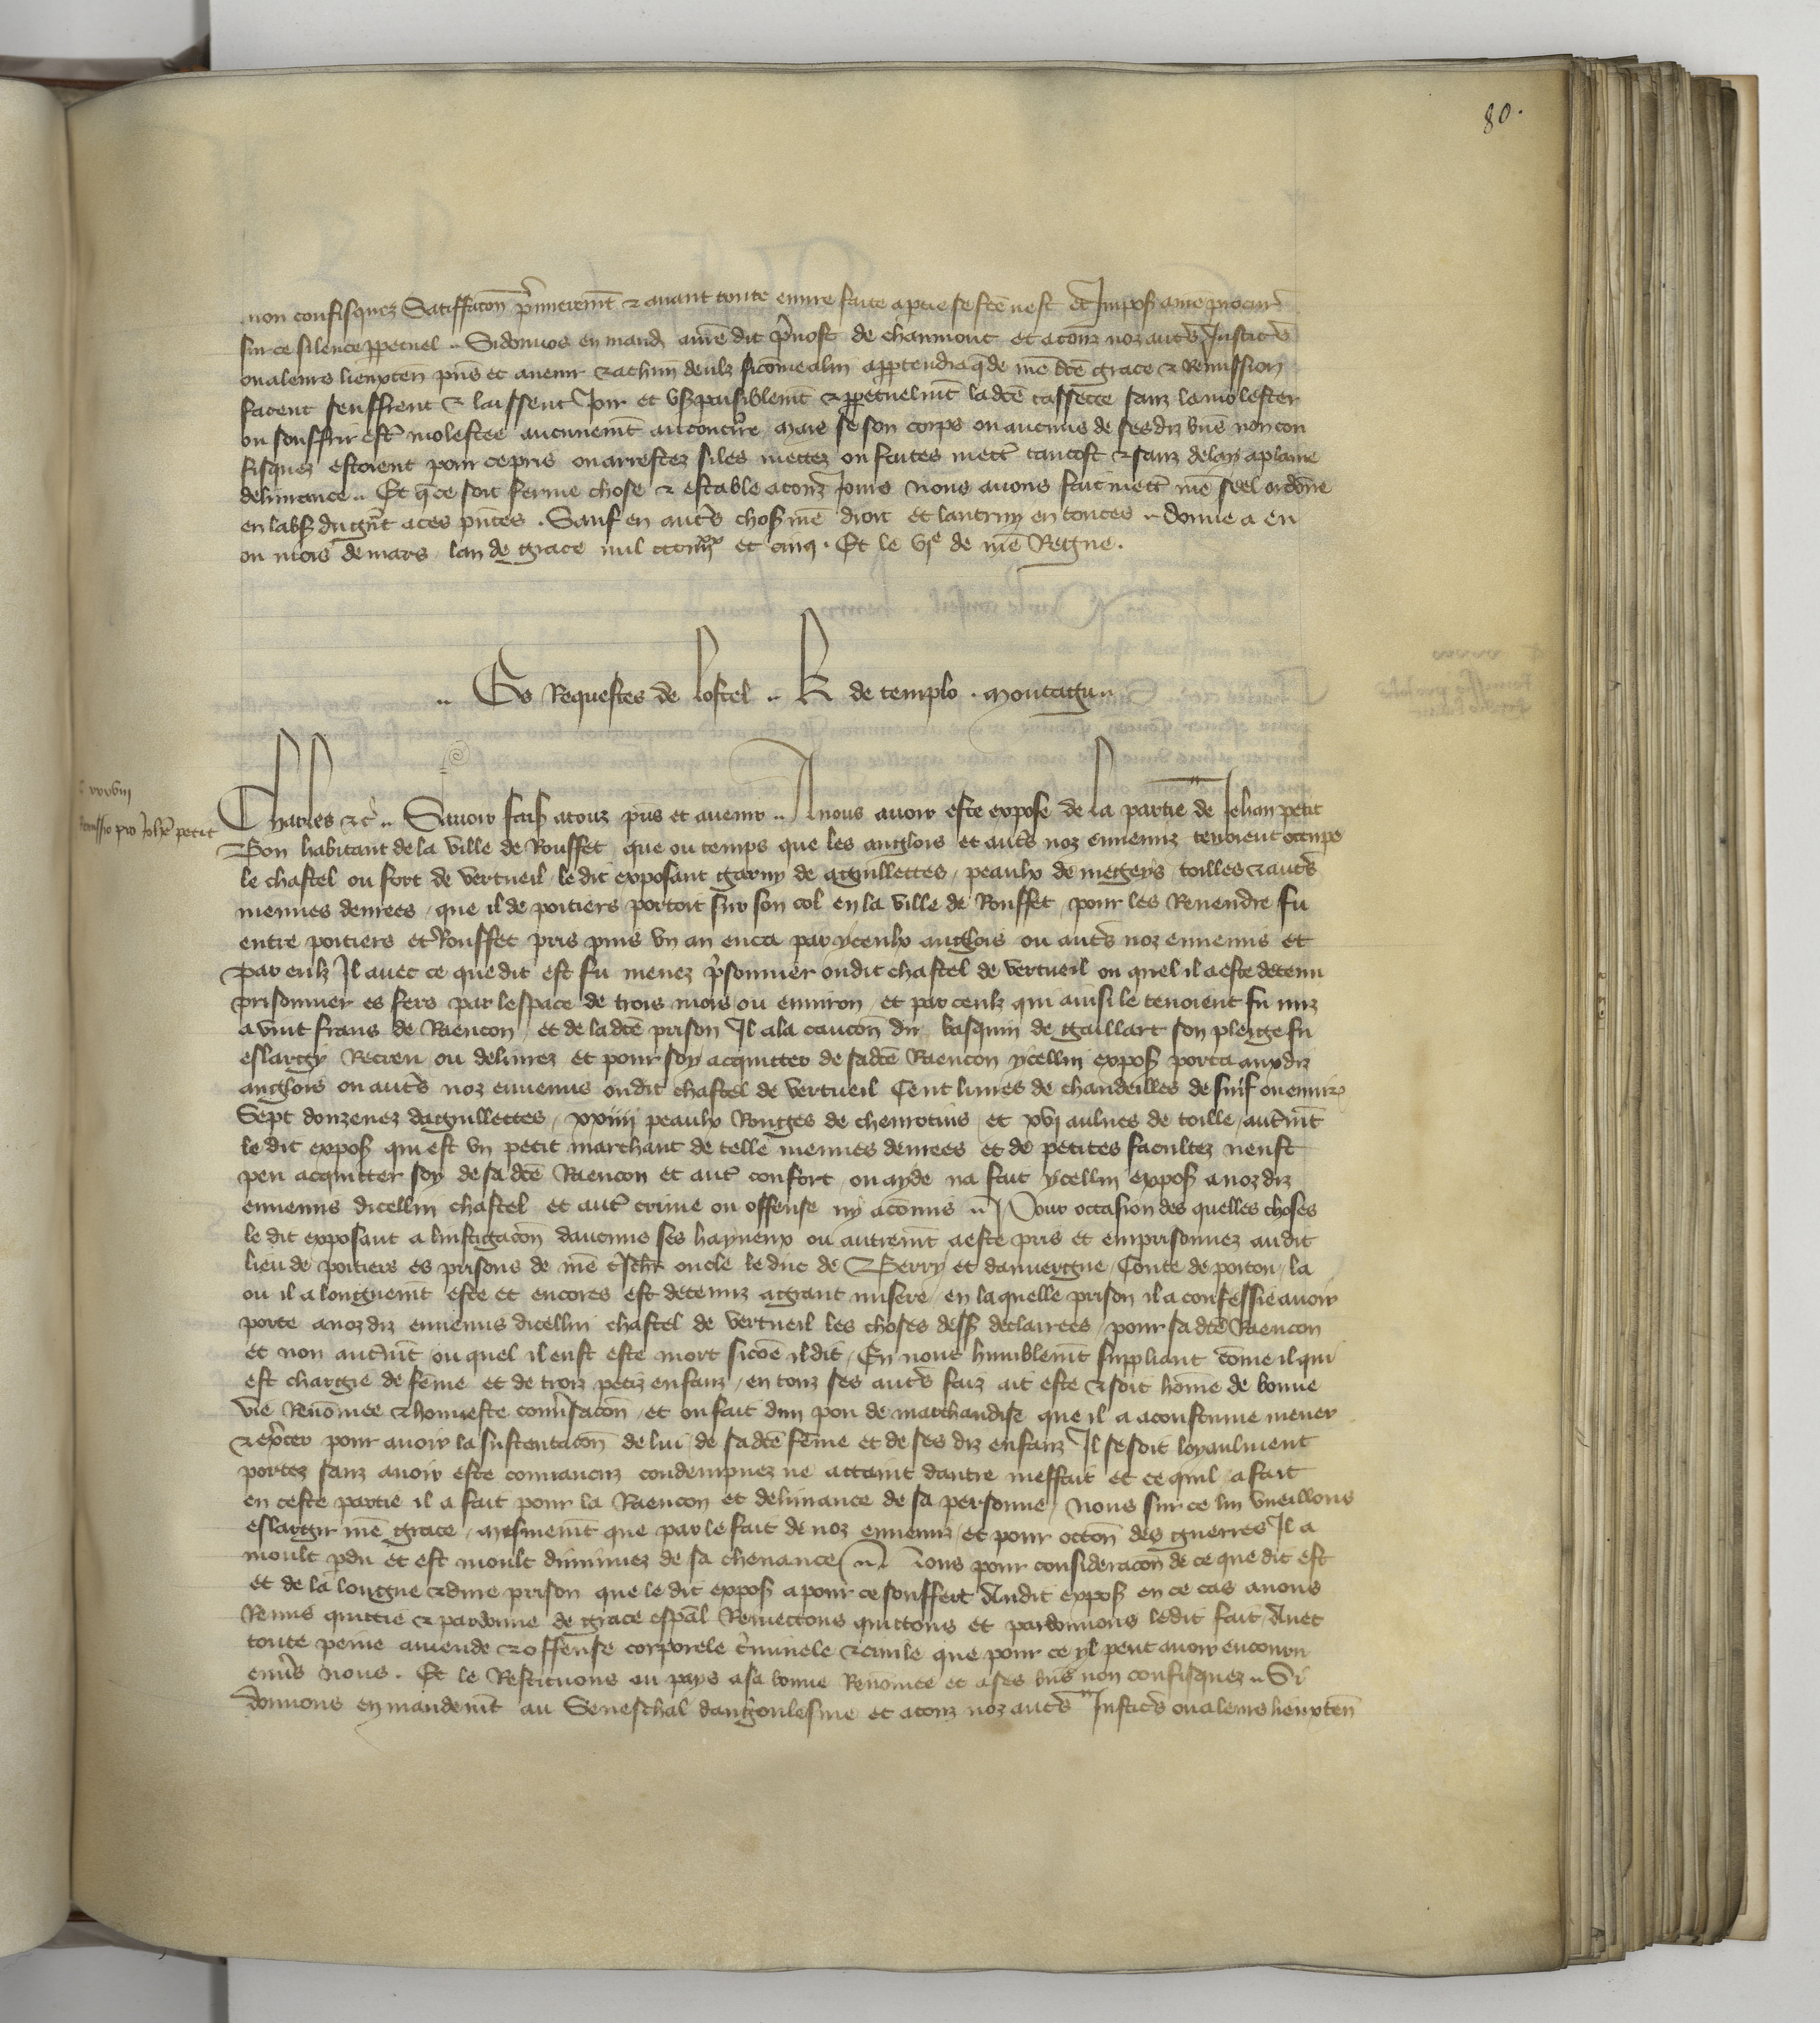 80.
non confisquez Satiffacon p̃mierem̃t & avant toute euure faite a ptie se fcẽ nest et Imposons a ñre procur̃
sur ce silence ppetuel .. Si donnons en mand. a nr̃e dit p̃uost de chaumont et a touz noz autr̃s Justic̃rs
ou a leurs lieuxten̄ pñs et auenir & a chũn deulz sicõme a lui appartendra q̃ de nr̃e dcẽ grace & Remission
facent seuffrent & laissent Joir et vser paisiblem̃t & ppetuelm̃t la dcẽ sanz le molester
ou souffrir estr̃ molestee aucunem̃t au contr̃re mais se son corps ou aucuns de sesdiz bñs non con
fisquez estoient pour ce pris ou arrestez si les mettez ou faites mettr̃ tantost & sanz delay a plaine
deliurance .. Et q̃ ce soit ferme chose & estable a touz Jours nous auons fait mettr̃ nr̃e seel ordõne
en labs̃ du gr̃nt a ces pñtes . Sauf en autr̃s choses nr̃e droit et lautruy en toutes .. donne a
ou mois de mars lan de grace mil ccc iiijxx et cinq . Et le vje de nr̃e Regne .
.. Es Requestes de lostel .. R de templo . Montagu ..
Remissio pro Joh̃e petit
Charles &c̃ .. Sauoir faisons a touz pñs et auenir .. A nous auoir este expose de la partie de Jehan petit
Bon habitant de la ville de Rouffet que ou temps que les anglois et autr̃s noz ennemiz tenoient occupe
le chastel ou fort de vertueil le dit exposant garny de aguillettes / peaulx de megeys toilles & autr̃s
menues denrees / que il de poitiers portoit sur son col en la ville de Rouffet pour les Reuendre fu
entre poitiers et Rouffet pris puis vn an enca par yceulx anglois ou autr̃s noz ennemis et
par eulz Il auec ce que dit est fu menez p̃sonnier oudit chastel de vertueil ou quel il a este detenu
prisonnier es fers par lespace de trois mois ou enuiron / et par ceulz qui ainsi le tenoient fu mis
a vint frans de Raencon / et de la dcẽ prison Il a la caucon du basquin de gaillart son pleige fu
eslargy Recreu ou deliurez et pour soy acquitter de sa dcẽ Raencon ycellui expos̃ porta aux diz
anglois ou autr̃s noz ennemis oudit chastel de vertueil Cent liures de chandeilles de suif ou enuir̃
Sept douzenez daguillettes / xxiiij peaulx Rouges de cheurotins et xvj aulnes de toille / autrem̃t
le dit expos̃ qui est vn petit marchant de telle menues denrees et de petites facultez neust
peu acquitter soy de sa dcẽ Raencon et autr̃ confort ou ayde na fait ycellui expos̃ a noz diz
ennemis dicellui chastel et autr̃ crime ou offense ny a cõmis .. Pour occasion des quelles choses
le dit exposant a linstigacõn daucuns ses hayneux ou autrem̃t a este pris et emprisonnez audit
lieu de poitiers es prisons de nr̃e oncle le duc de Berry et dauuergne / Conte de poitou / la
ou il a longuem̃t este et encores est detenuz a grant misere / en la quelle prison il a confessie auoir
porte a noz diz ennemis dicellui chastel de vertueil les choses dess̃ declairees / pour sa dcẽ Raencon
et non autrem̃t ou quel il eust este mort sicõe il dit / En nous humblem̃t suppliant cõme il qui
est chargie de fẽme et de trois petiz enfanz / en touz ses autr̃s faiz ait este & soit hõme de bonne
vie Renõmee & honneste conũsacõn / et ou fait dun pou de marchandise que il a acoustume mener
& exc̃er pour auoir la sustentacõn de lui / de sa dcẽ fẽme et de ses diz enfanz Il se soit loyaulment
portez sanz auoir este conuaincuz condempnez ne attaint dautre meffait et ce quil a fait
en ceste partie il a fait pour la Raencon et deliurance de sa personne / Nous sur ce lui vueillons
eslargir nr̃e grace / mesmem̃t que par le fait de noz ennemiz / et pour occõn des guerres Il a
moult pdu et est moult diminuez de sa cheuance .. Nous pour consideracõn de ce que dit est
et de la longue & dure prison que le dit expos̃ a pour ce souffert Audit expos̃ en ce cas auons
Remis quittie & pardonne de grace esp̃al Remettons quittons et pardonnons le dit fait / Auec
toute peine amende & offense corporele c̃minele & ciuile que pour ce yl peut auoir encouru
enũs nous . Et le Restituons au pays a sa bonne Renõmee et a ses bñs non confisquez .. Si
donnons en mandem̃t au Seneschal dangoulesme et a touz noz autr̃s Justic̃rs ou a leurs lieuxten̄